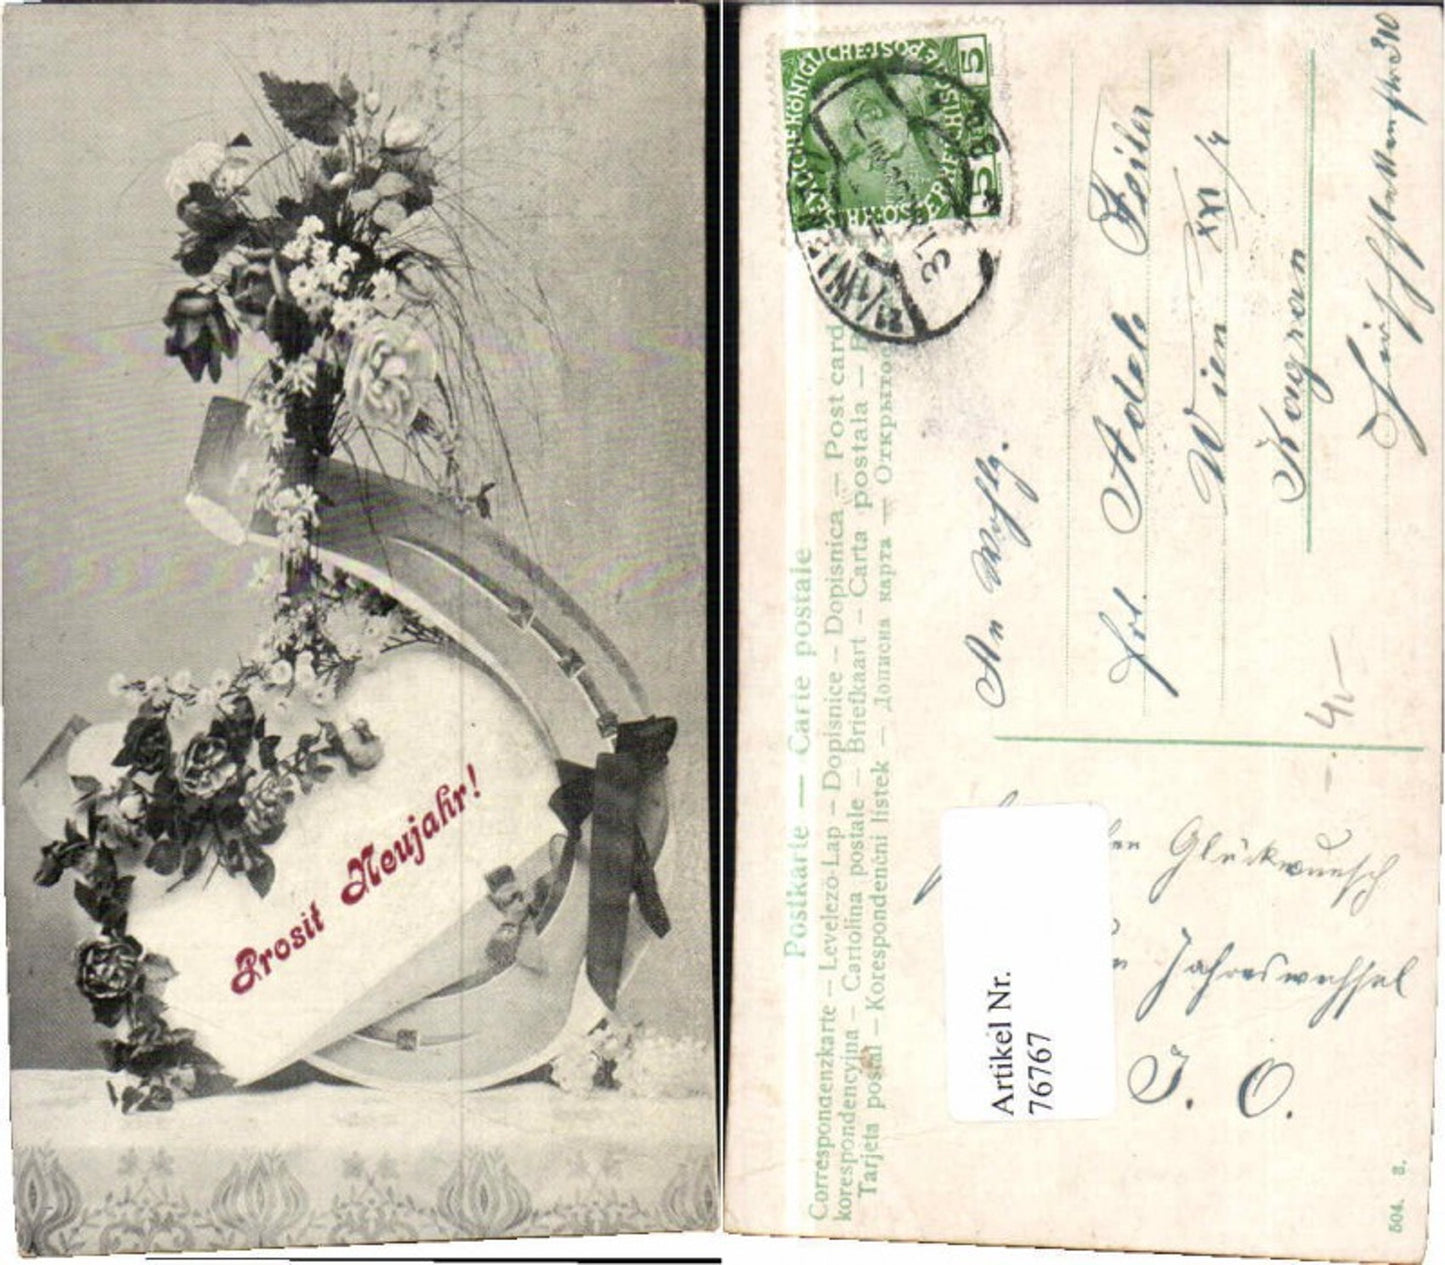 Prosit Neujahr!
5
5
21/1 WIEN
Postkarte — Carte postale
Correspondenzkarte — Levelező-Lap — Dopisnice — Dopisnica — Post card
korespondencyjna — Cartolina postale — Briefkaart — Carta postala —
Tarjeta postal — Korespondenční lístek — Дописна карта —
An Wohlg.
Frl. Adele
Wien XXI/4
Kagran
310
Glückwunsch
Jahreswechsel
J. O.
-. 4,-
Artikel Nr.
76767
504. 8.